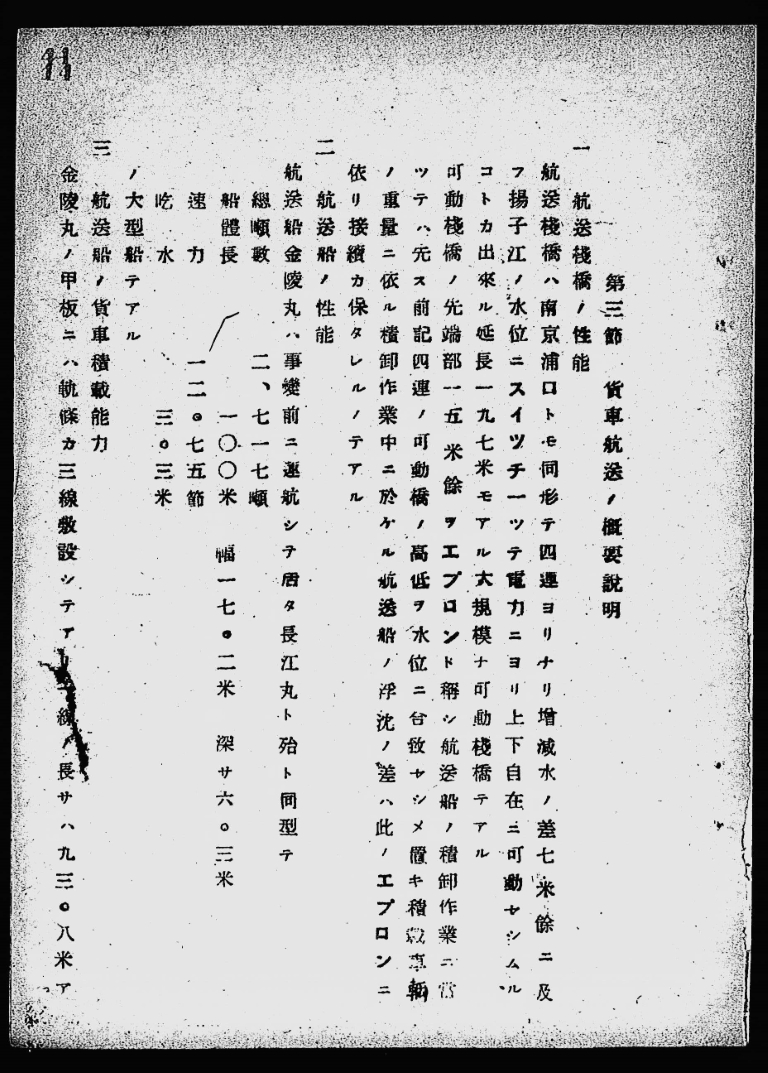 11
第三節 貨車航送ノ概要說明
一 航送棧橋ノ性能
航送棧橋ハ南京浦口トモ同形テ四連ヨリナリ增減水ノ差七米餘ニ及
フ揚子江ノ水位ニスイツチ一ツテ電力ニヨリ上下自在ニ可動セシムル
コトカ出來ル延長一九七米モアル大規模ナ可動棧橋テアル
可動棧橋ノ先端部一五米餘ヲエプロント稱シ航送船ノ積卸作業ニ當
ツテハ先ス前記四連ノ可動橋ノ高低ヲ水位ニ合致セシメ置キ積載車輛
ノ重量ニ依ル積卸作業中ニ於ケル航送船ノ浮沈ノ差ハ此ノエプロンニ
依リ接續カ保タレルノテアル
二 航送船ノ性能
航送船金陵丸ハ事變前ニ運航シテ居タ長江丸ト殆ト同型テ
總噸數 二、七一七噸
船體長 一〇〇米 幅一七。二米 深サ六。三米
速力 一二。七五節
吃水 三。三米
ノ大型船テアル
三 航送船ノ貨車積載能力
金陵丸ノ甲板ニハ軌條カ三線敷設シテア 線ノ長サハ九三。八米ア